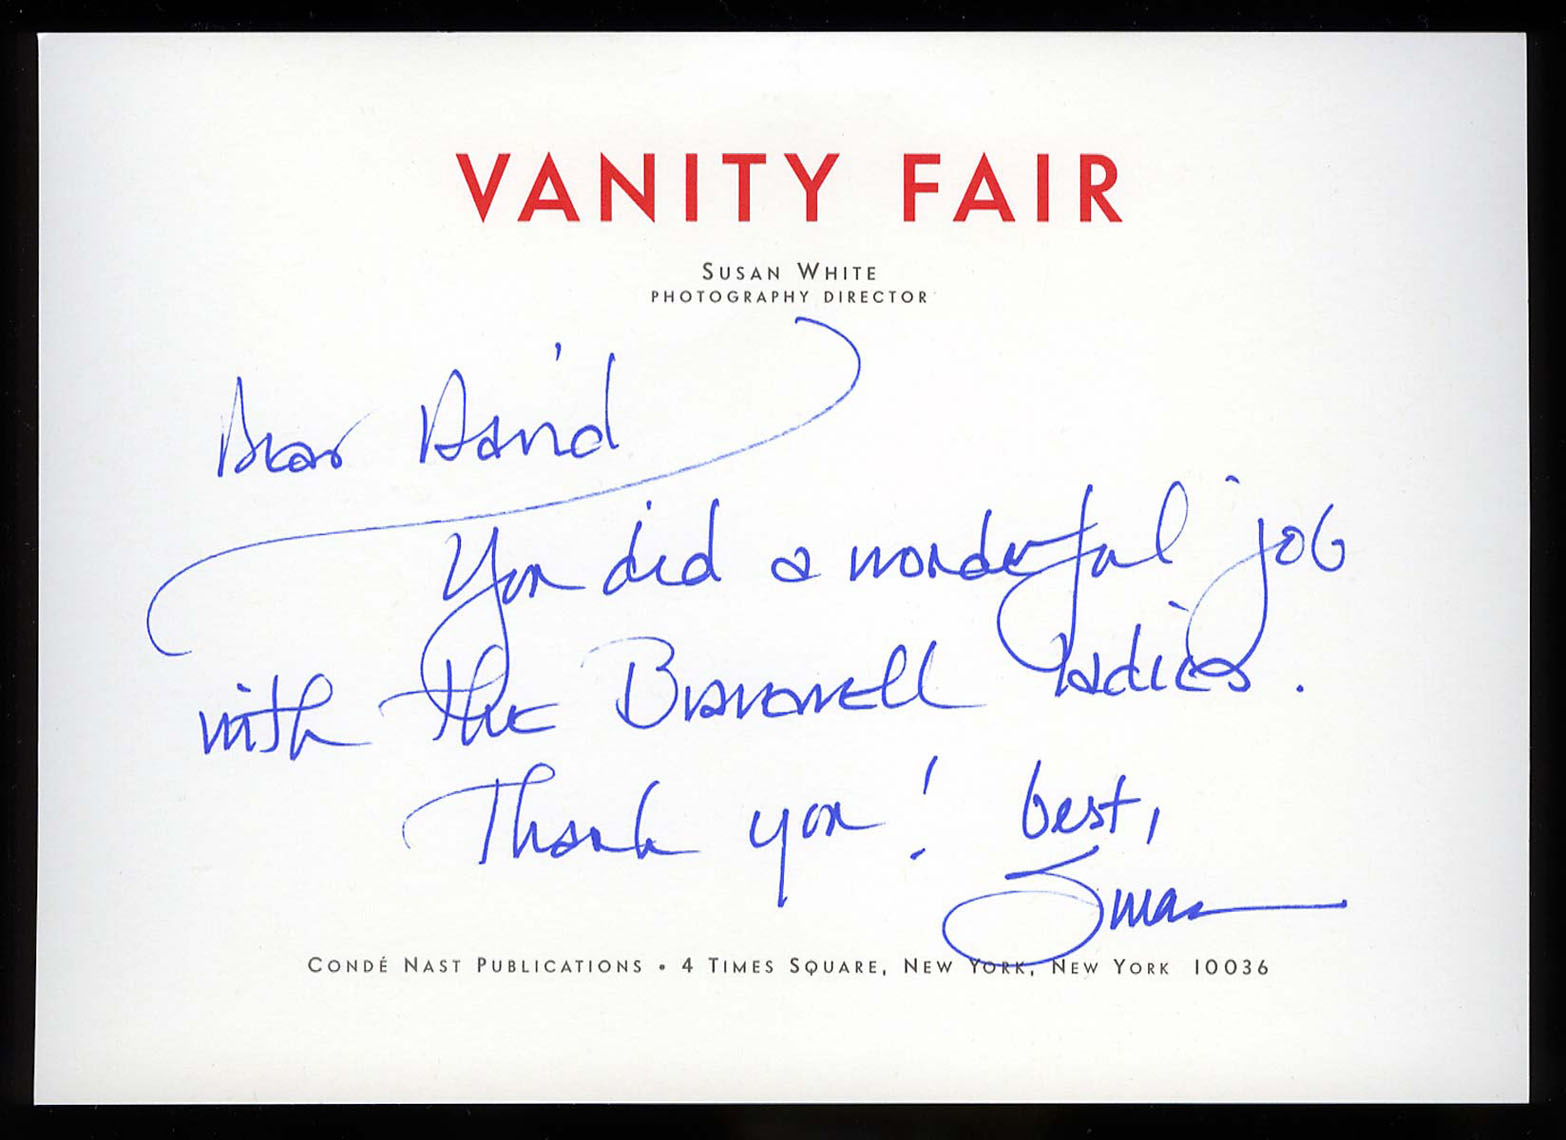 VANITY FAIR
SUSAN WHITE
PHOTOGRAPHY DIRECTOR
Dear David
You did a wonderful job
with the ladies.
Thank you! best,
Susan
CONDÉ NAST PUBLICATIONS • 4 TIMES SQUARE, NEW YORK, NEW YORK 10036